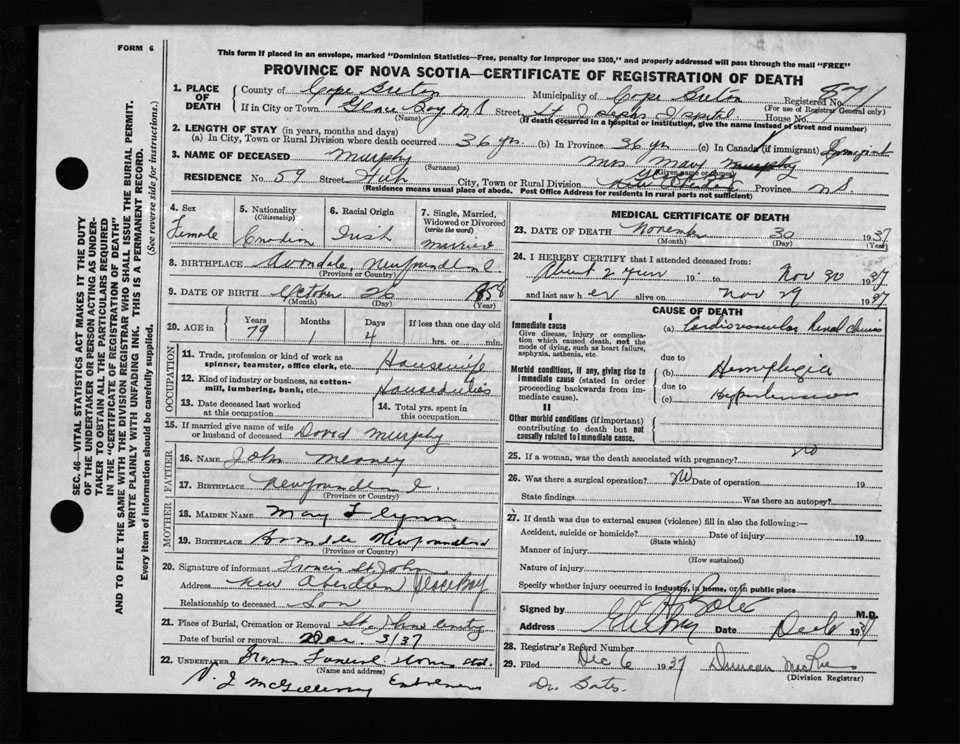 FORM 6
This form if placed in an envelope, marked "Dominion Statistics—Free, penalty for improper use $300," and properly addressed will pass through the mail "FREE"
PROVINCE OF NOVA SCOTIA—CERTIFICATE OF REGISTRATION OF DEATH
1. PLACE OF DEATH
County of Cape Breton Municipality of Cape Breton Registered No. 871
(For use of Registrar General only)
If in City or Town Glace Bay N S Street St Josephs Hospital House No.
(Name) (If death occurred in a hospital or institution, give the name instead of street and number)
2. LENGTH OF STAY (in years, months and days)
(a) In City, Town or Rural Division where death occurred 36 yrs (b) In Province 36 yrs (c) In Canada (if immigrant)
3. NAME OF DECEASED Murphy Mrs Mary Murphy
(Surname) (Given name or names)
RESIDENCE No. 59 Street City, Town or Rural Division Province N S
(Residence means usual place of abode. Post Office Address for residents in rural parts not sufficient)
4. Sex
Female
5. Nationality
(Citizenship)
Canadian
6. Racial Origin
Irish
7. Single, Married, Widowed or Divorced
(write the word)
Married
8. BIRTHPLACE Avondale, Newfoundland
(Province or Country)
9. DATE OF BIRTH October 26 1858
(Month) (Day) (Year)
10. AGE in Years Months Days If less than one day old
79 1 4 hrs. or min.
OCCUPATION
11. Trade, profession or kind of work as spinner, teamster, office clerk, etc. Housewife
12. Kind of industry or business, as cotton-mill, lumbering, bank, etc. Houseduties
13. Date deceased last worked at this occupation
14. Total yrs. spent in this occupation
15. If married give name of wife or husband of deceased David Murphy
FATHER
16. NAME John
17. BIRTHPLACE Newfoundland
(Province or Country)
MOTHER
18. MAIDEN NAME Mary Flynn
19. BIRTHPLACE Avondale Newfoundland
(Province or Country)
20. Signature of informant Francis St. John
Address New Aberdeen Glace Bay
Relationship to deceased Son
21. Place of Burial, Cremation or Removal
Date of burial or removal 3/37
22. UNDERTAKER Funeral Home Ltd.
(Name and address)
MEDICAL CERTIFICATE OF DEATH
23. DATE OF DEATH November 30 1937
(Month) (Day) (Year)
24. I HEREBY CERTIFY that I attended deceased from:
About 2 years 19 to Nov 30 1937
and last saw her alive on Nov 29 1937
CAUSE OF DEATH
I
Immediate cause
Give disease, injury or complication which caused death, not the mode of dying, such as heart failure, asphyxia, asthenia, etc.
(a) Cardiovascular Renal
due to
Morbid conditions, if any, giving rise to immediate cause (stated in order proceeding backwards from immediate cause).
(b) Hemiplegia
due to
(c) Hypertension
II
Other morbid conditions (if important) contributing to death but not causally related to immediate cause.
25. If a woman, was the death associated with pregnancy? no
26. Was there a surgical operation? No Date of operation 19
State findings Was there an autopsy?
27. If death was due to external causes (violence) fill in also the following:—
Accident, suicide or homicide? Date of injury 19
(State which)
Manner of injury
(How sustained)
Nature of injury
Specify whether injury occurred in industry, in home, or in public place
Signed by M.D.
Address Date Dec 6 1937
28. Registrar's Record Number
29. Filed Dec 6 1937 Duncan
(Division Registrar)
Dr. Bates.
SEC. 46—VITAL STATISTICS ACT MAKES IT THE DUTY
OF THE UNDERTAKER OR PERSON ACTING AS UNDER-
TAKER TO OBTAIN ALL THE PARTICULARS REQUIRED
IN THE "CERTIFICATE OF REGISTRATION OF DEATH"
AND TO FILE THE SAME WITH THE DIVISION REGISTRAR WHO SHALL ISSUE THE BURIAL PERMIT.
WRITE PLAINLY WITH UNFADING INK. THIS IS A PERMANENT RECORD.
Every item of information should be carefully supplied. (See reverse side for instructions.)